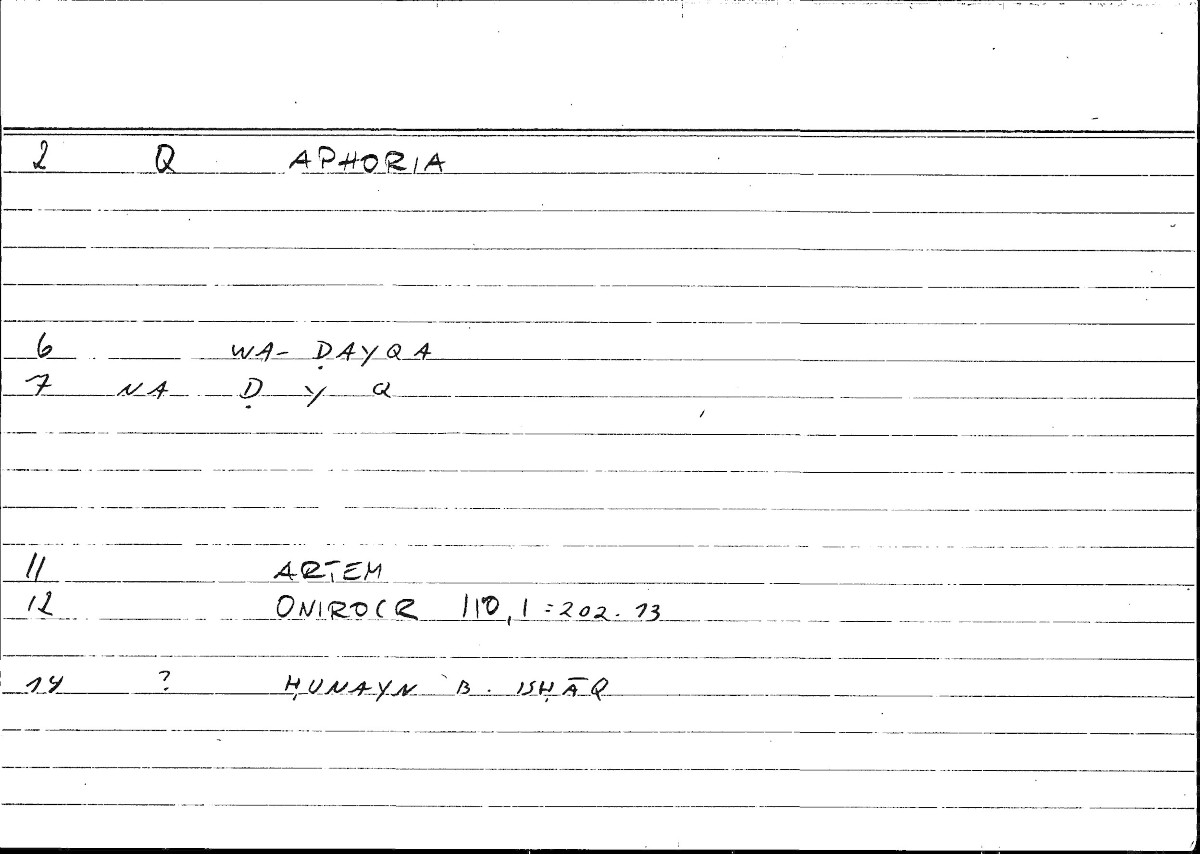 2 Q APHORIA
6 WA- ḌAYQA
7 NA Ḍ Y Q
11 ARTEM
12 ONIROCR 110,1=202.13
14 ? ḤUNAYN B. ISḤĀQ